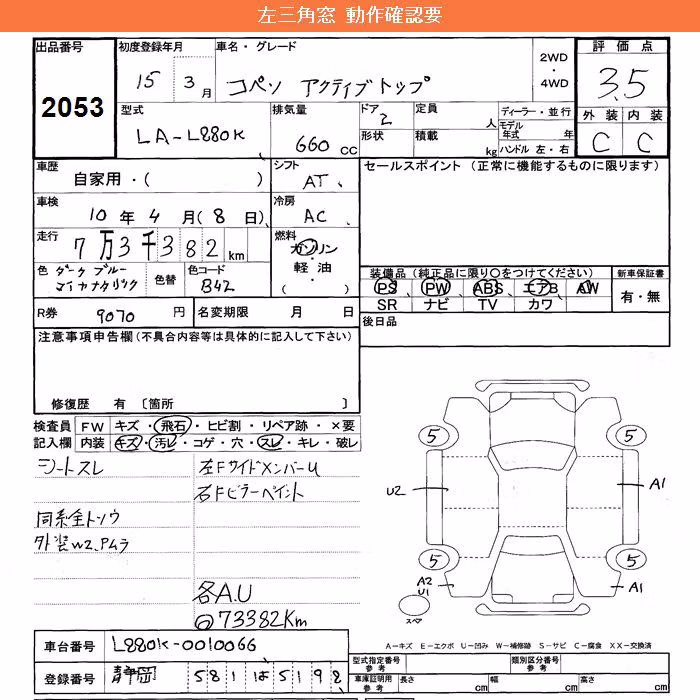 左三角窓 動作確認要
出品番号 2053
初度登録年月 15 3月
車名・グレード コペン アクティブトップ
2WD・4WD
評価点 3.5
外装 C 内装 C
型式 LA-L880K
排気量 660cc
ドア 2
形状
定員 人
積載 kg
ディーラー・並行
モデル年式 年
ハンドル 左・右
車歴 自家用・( )
シフト AT
セールスポイント (正常に機能するものに限ります)
車検 10年4月(8日)
冷房 AC
走行 7万3千382km
燃料 ガソリン・軽油・( )
色 ダークブルーマイカメタリック
色替
色コード B42
装備品(純正品に限り○をつけてください)
PS PW ABS エアB AW
SR ナビ TV カワ
新車保証書 有・無
R券 9070円
名変期限 月 日
後日品
注意事項申告欄(不具合内容等は具体的に記入して下さい)
修復歴 有〔箇所 〕
検査員記入欄
FW キズ・飛石・ヒビ割・リペア跡・×要
内装 キズ・汚レ・コゲ・穴・スレ・キレ・破レ
シートスレ
左FサイドメンバーU
右Fピラーペイント
同系全トソウ
外装W2.Pムラ
各A.U
73382Km
5 5
U2 A1
5 5
A2
U1
A1
スペア
A-キズ E-エクボ U-凹み W-補修跡 S-サビ C-腐食 XX-交換済
車台番号 L880K-0010066
登録番号 静岡 581 ほ 5198
型式指定番号 参考
類別区分番号 参考
車庫証明用 参考
長さ cm 幅 cm 高さ cm